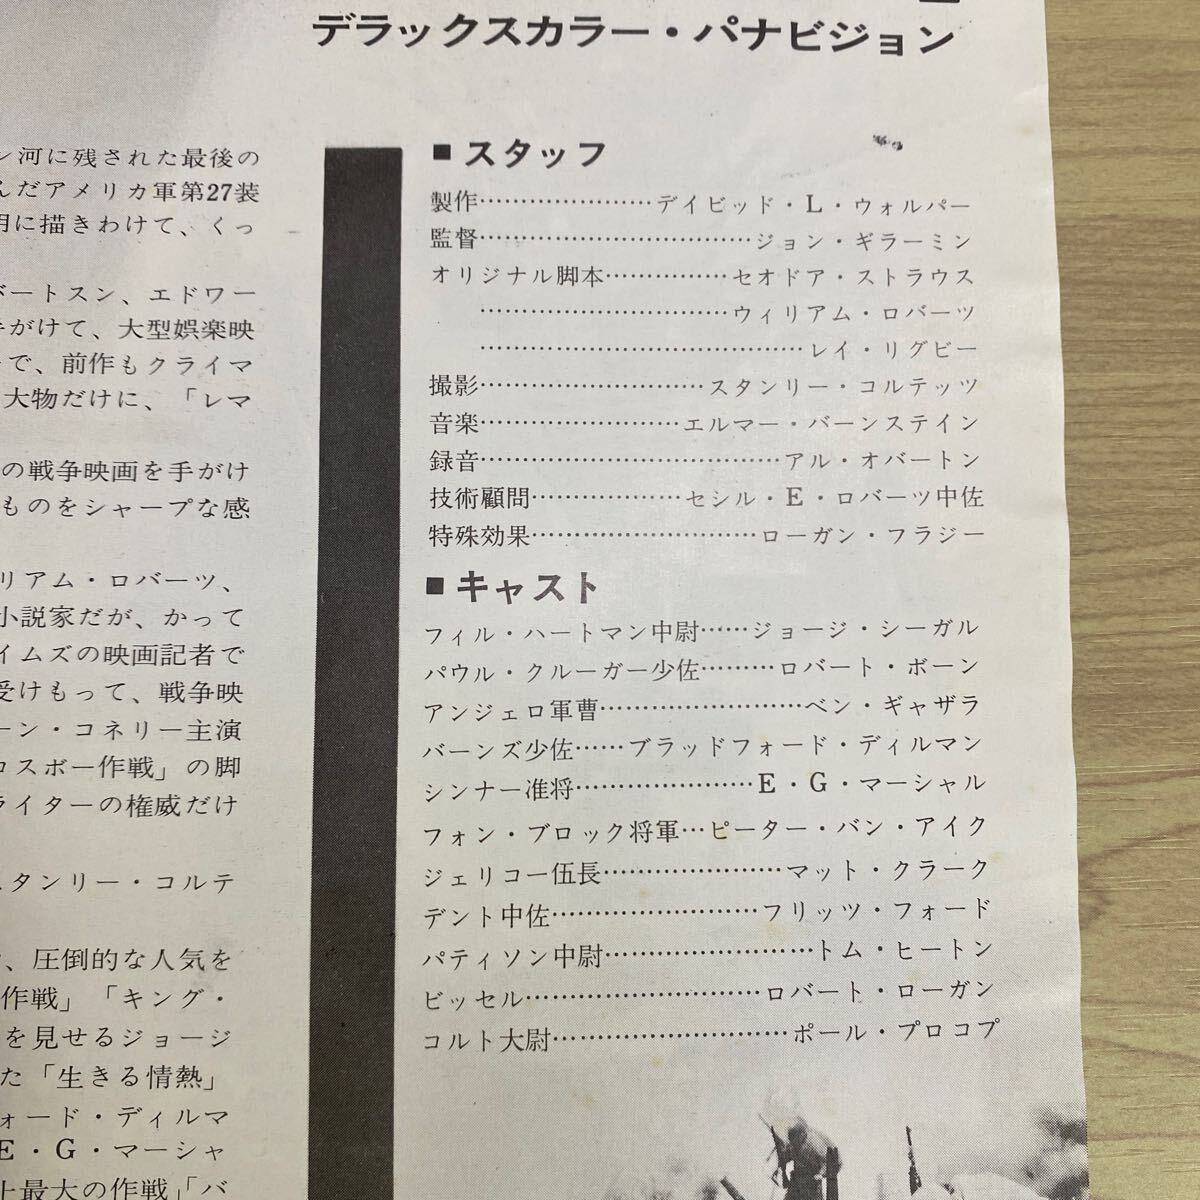 デラックスカラー・パナビジョン
ン河に残された最後の
んだアメリカ軍第27装
明に描きわけて、くっ
バートスン、エドワー
手がけて、大型娯楽映
で、前作もクライマ
大物だけに、「レマ
の戦争映画を手がけ
ものをシャープな感
リアム・ロバーツ、
小説家だが、かって
イムズの映画記者で
受けもって、戦争映
ーン・コネリー主演
ロスボー作戦」の脚
ライターの権威だけ
スタンリー・コルテ
、圧倒的な人気を
作戦」「キング・
を見せるジョージ
た「生きる情熱」
ォード・ディルマ
E・G・マーシャ
上最大の作戦」「バ
■スタッフ
製作…………………デイビッド・L・ウォルパー
監督……………………………ジョン・ギラーミン
オリジナル脚本……………セオドア・ストラウス
……………………………ウィリアム・ロバーツ
……………………………………レイ・リグビー
撮影………………………スタンリー・コルテッツ
音楽……………………エルマー・バーンステイン
録音…………………………………アル・オバートン
技術顧問………………セシル・E・ロバーツ中佐
特殊効果………………………ローガン・フラジー
■キャスト
フィル・ハートマン中尉……ジョージ・シーガル
パウル・クルーガー少佐………ロバート・ボーン
アンジェロ軍曹……………………ベン・ギャザラ
バーンズ少佐……ブラッドフォード・ディルマン
シンナー准将…………………E・G・マーシャル
フォン・ブロック将軍…ピーター・バン・アイク
ジェリコー伍長…………………マット・クラーク
デント中佐……………………フリッツ・フォード
パティソン中尉……………………トム・ヒートン
ビッセル…………………………ロバート・ローガン
コルト大尉………………………ポール・プロコプ